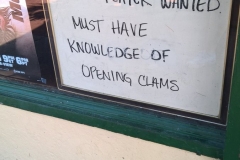 WANTED.
MUST HAVE
KNOWLEDGE OF
OPENING CLAMS